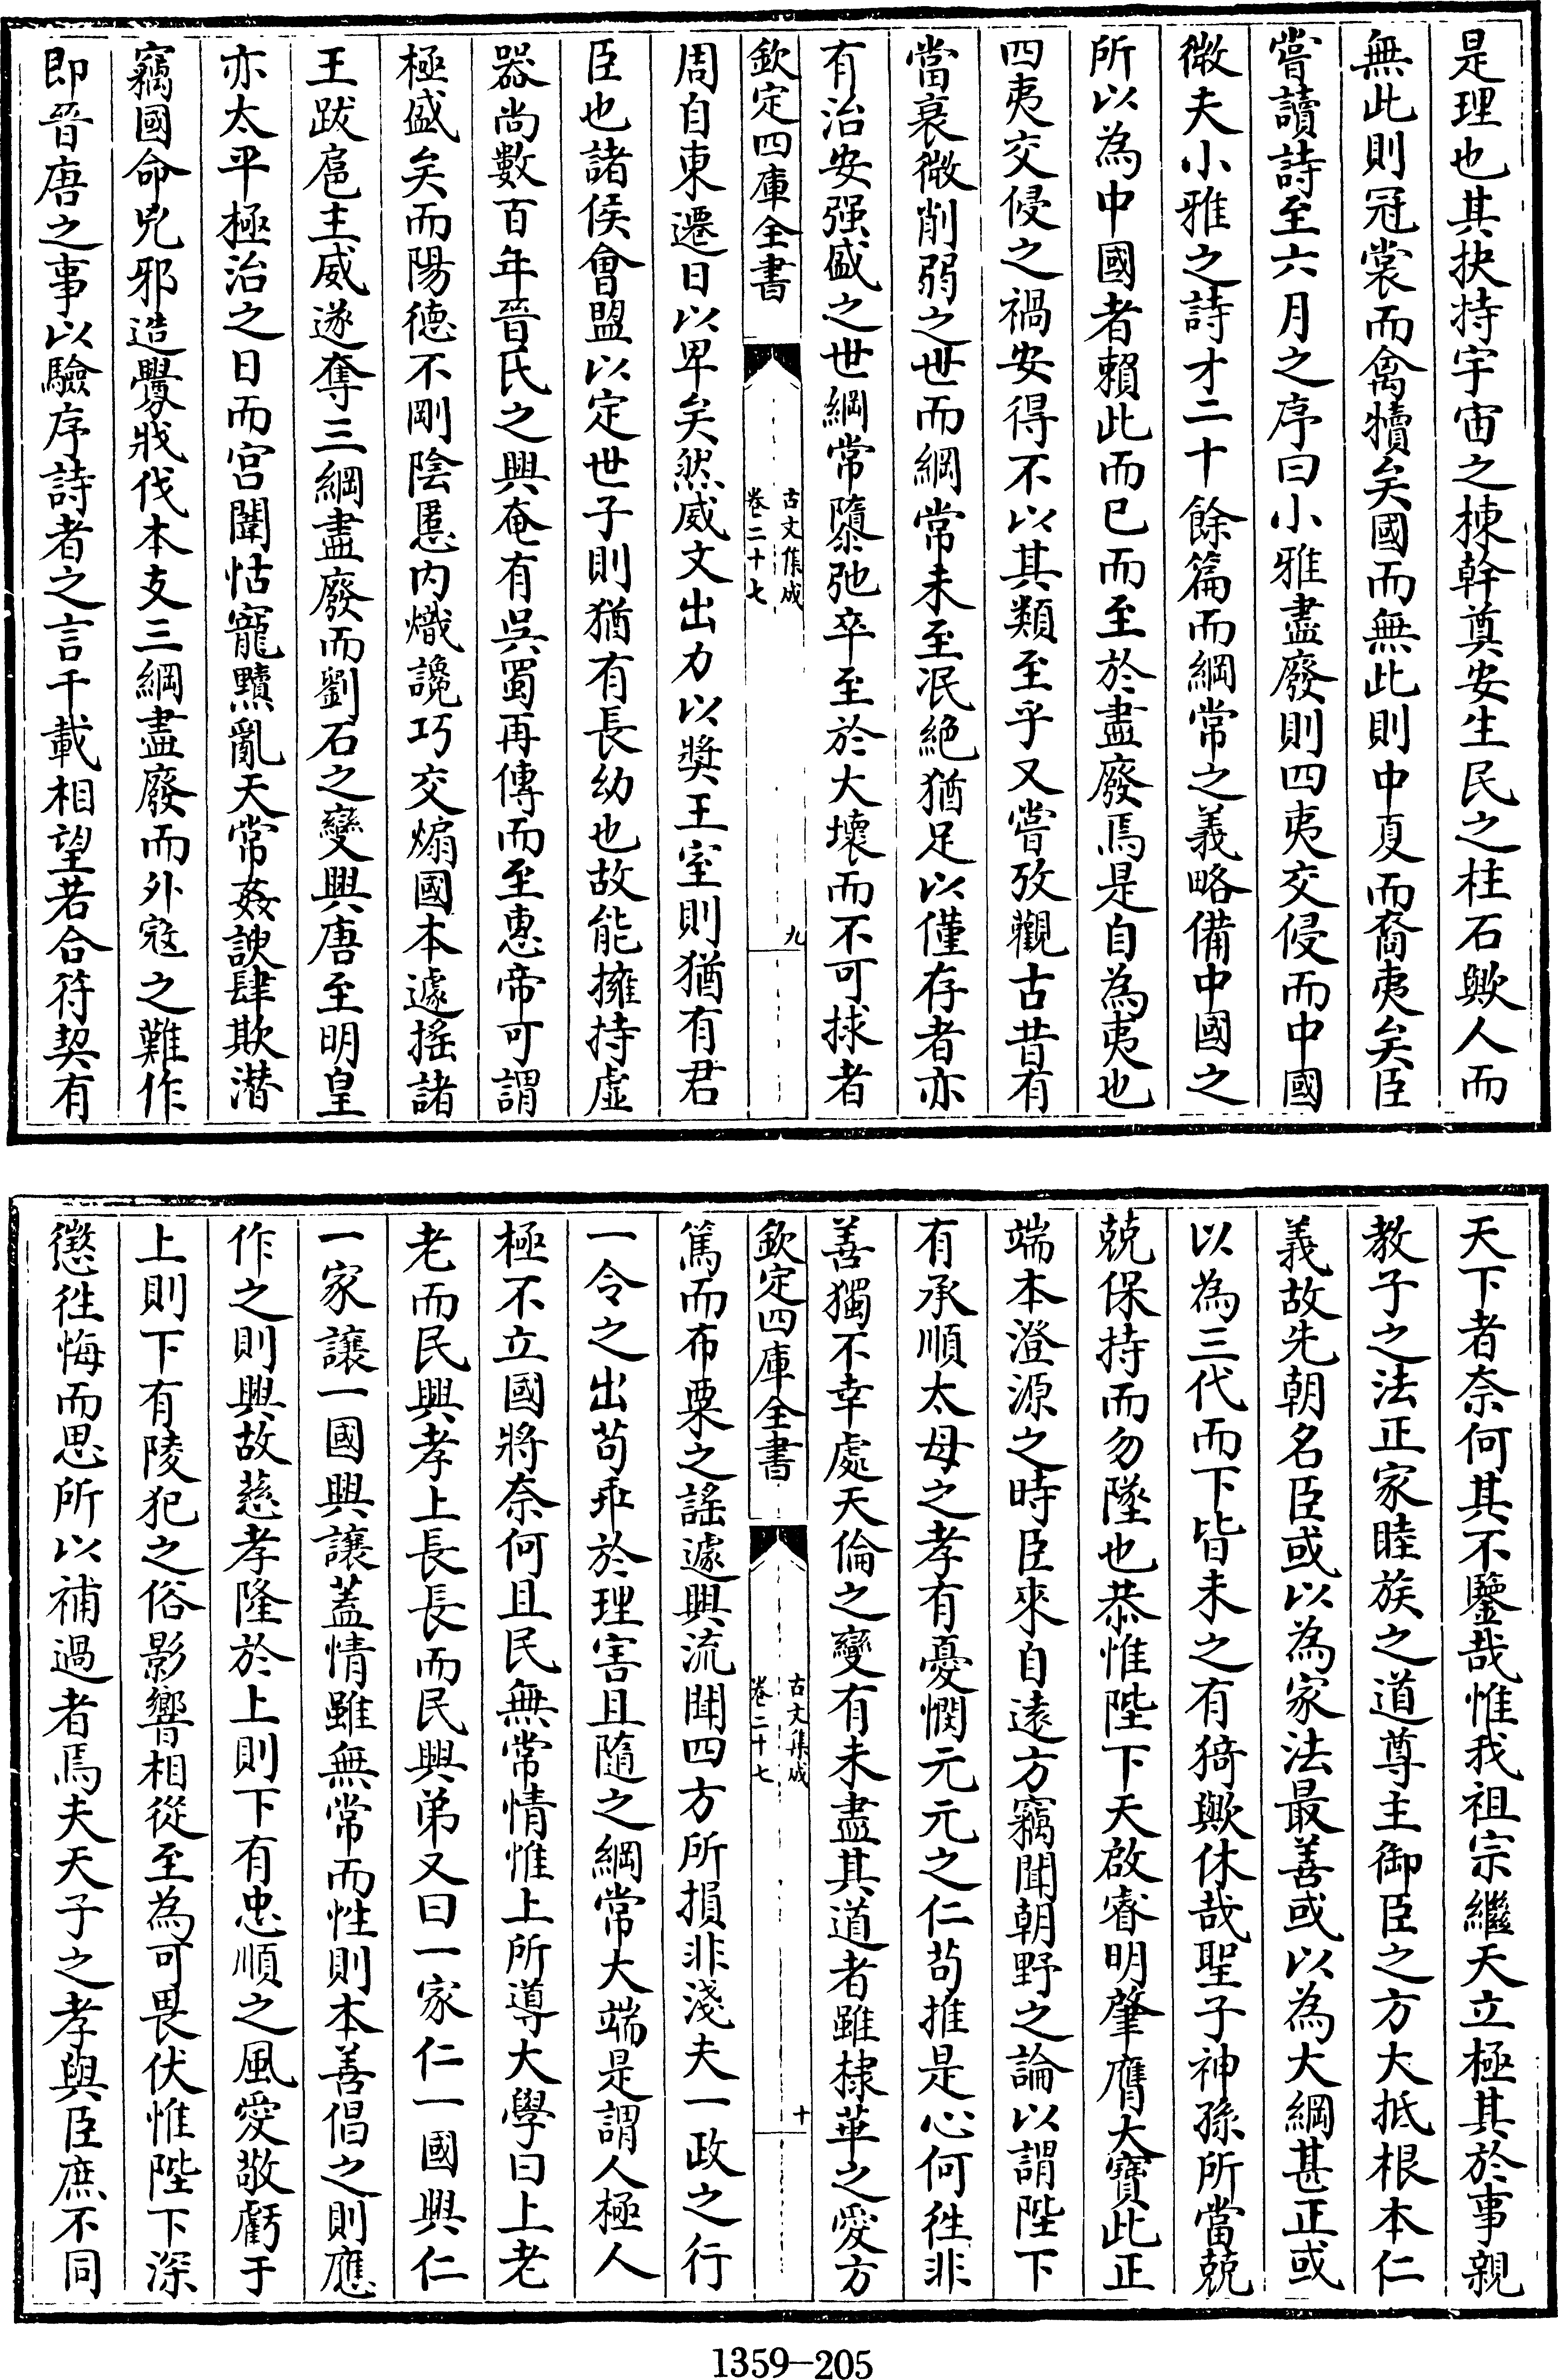 是理也其抉持宇宙之棟幹奠安生民之柱石歟人而
無此則冠裳而禽犢矣國而無此則中夏而裔夷矣臣
嘗讀詩至六月之序曰小雅盡廢則四夷交侵而中國
微夫小雅之詩才二十餘篇而綱常之義略備中國之
所以為中國者賴此而已而至於盡廢焉是自為夷也
四夷交侵之禍安得不以其類至乎又嘗攷觀古昔有
當衰微削弱之世而綱常未至泯絶猶足以僅存者亦
有治安强盛之世綱常隳弛卒至於大壞而不可捄者
欽定四庫全書
古文集成
卷二十七
九
周自東遷日以卑矣然威文出力以奬王室則猶有君
臣也諸侯會盟以定世子則猶有長幼也故能擁持虛
器尚數百年晉氏之興奄有呉蜀再傳而至惠帝可謂
極盛矣而陽德不剛陰慝内熾讒巧交煽國本遽揺諸
王跋扈主威遂奪三綱盡廢而劉石之變興唐至明皇
亦太平極治之日而宫闈怙寵黷亂天常姦諛肆欺潛
竊國命兇邪造釁戕伐本支三綱盡廢而外寇之難作
即晉唐之事以驗序詩者之言千載相望若合符契有
天下者奈何其不鑒哉惟我祖宗繼天立極其於事親
教子之法正家睦族之道尊主御臣之方大抵根本仁
義故先朝名臣或以為家法最善或以為大綱甚正或
以為三代而下皆未之有猗歟休哉聖子神孫所當兢
兢保持而勿墜也恭惟陛下天啟睿明肇膺大寶此正
端本澄源之時臣來自遠方竊聞朝野之論以謂陛下
有承順太母之孝有憂憫元元之仁苟推是心何徃非
善獨不幸處天倫之變有未盡其道者雖棣華之愛方
欽定四庫全書
古文集成
卷二十七
十
篤而布粟之謡遽興流聞四方所損非淺夫一政之行
一令之出茍乖於理害且隨之綱常大端是謂人極人
極不立國將奈何且民無常情惟上所導大學曰上老
老而民興孝上長長而民興弟又曰一家仁一國興仁
一家讓一國興讓蓋情雖無常而性則本善倡之則應
作之則興故慈孝隆於上則下有忠順之風愛敬虧于
上則下有陵犯之俗影響相從至為可畏伏惟陛下深
懲徃悔而思所以補過者焉夫天子之孝與臣庶不同
1359-205